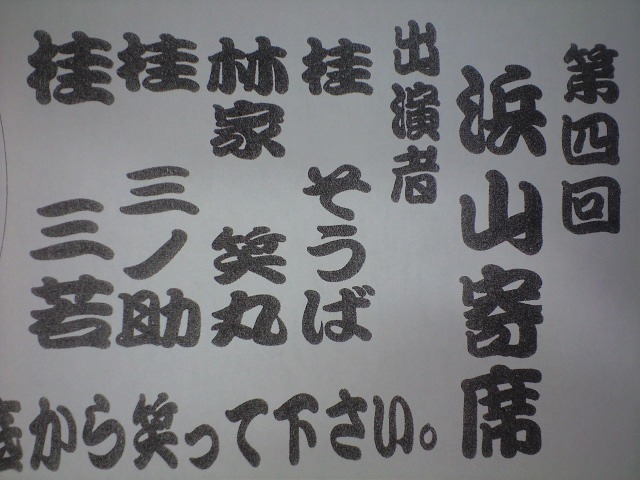 第四回
浜山寄席
出演者
桂 そうば
林家 笑丸
桂 三ノ助
桂 三若
から笑って下さい。